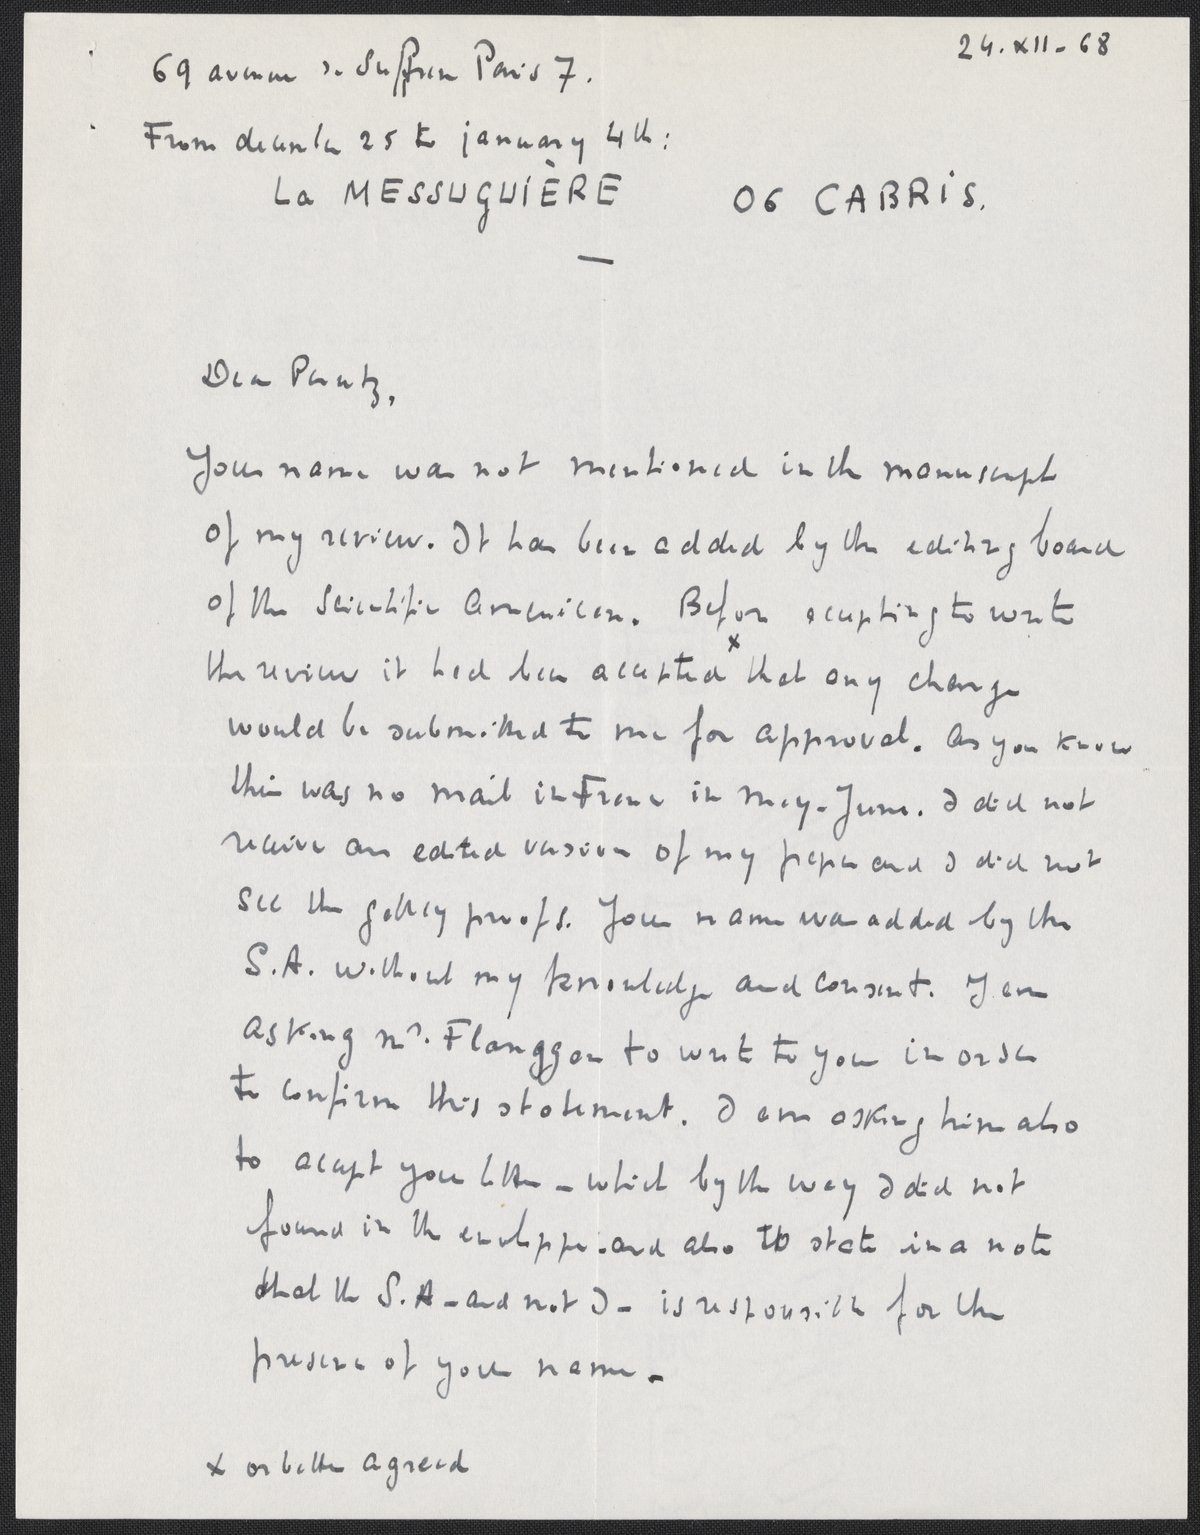 24.XII-68
69 avenue de Suffren Paris 7.
From december 25 to january 4th:
La MESSUGUIÈRE 06 CABRIS.
—
Dear Perutz,
Your name was not mentioned in the manuscript
of my review. It has been added by the editing board
of the Scientific American. Before accepting to write
the review it had been accepted x that any change
would be submitted to me for approval. As you know
their was no mail in France in May-June. I did not
receive an edited version of my paper and I did not
see the galley proofs. Your name was added by the
S.A. without my knowledge and consent. I am
asking Mr. Flanagan to write to you in order
to confirm this statement. I am asking him also
to accept your letter - which by the way I did not
found in the enveloppe - and also to state in a note
that the S.A - and not I - is responsible for the
presence of your name -
x or better agreed